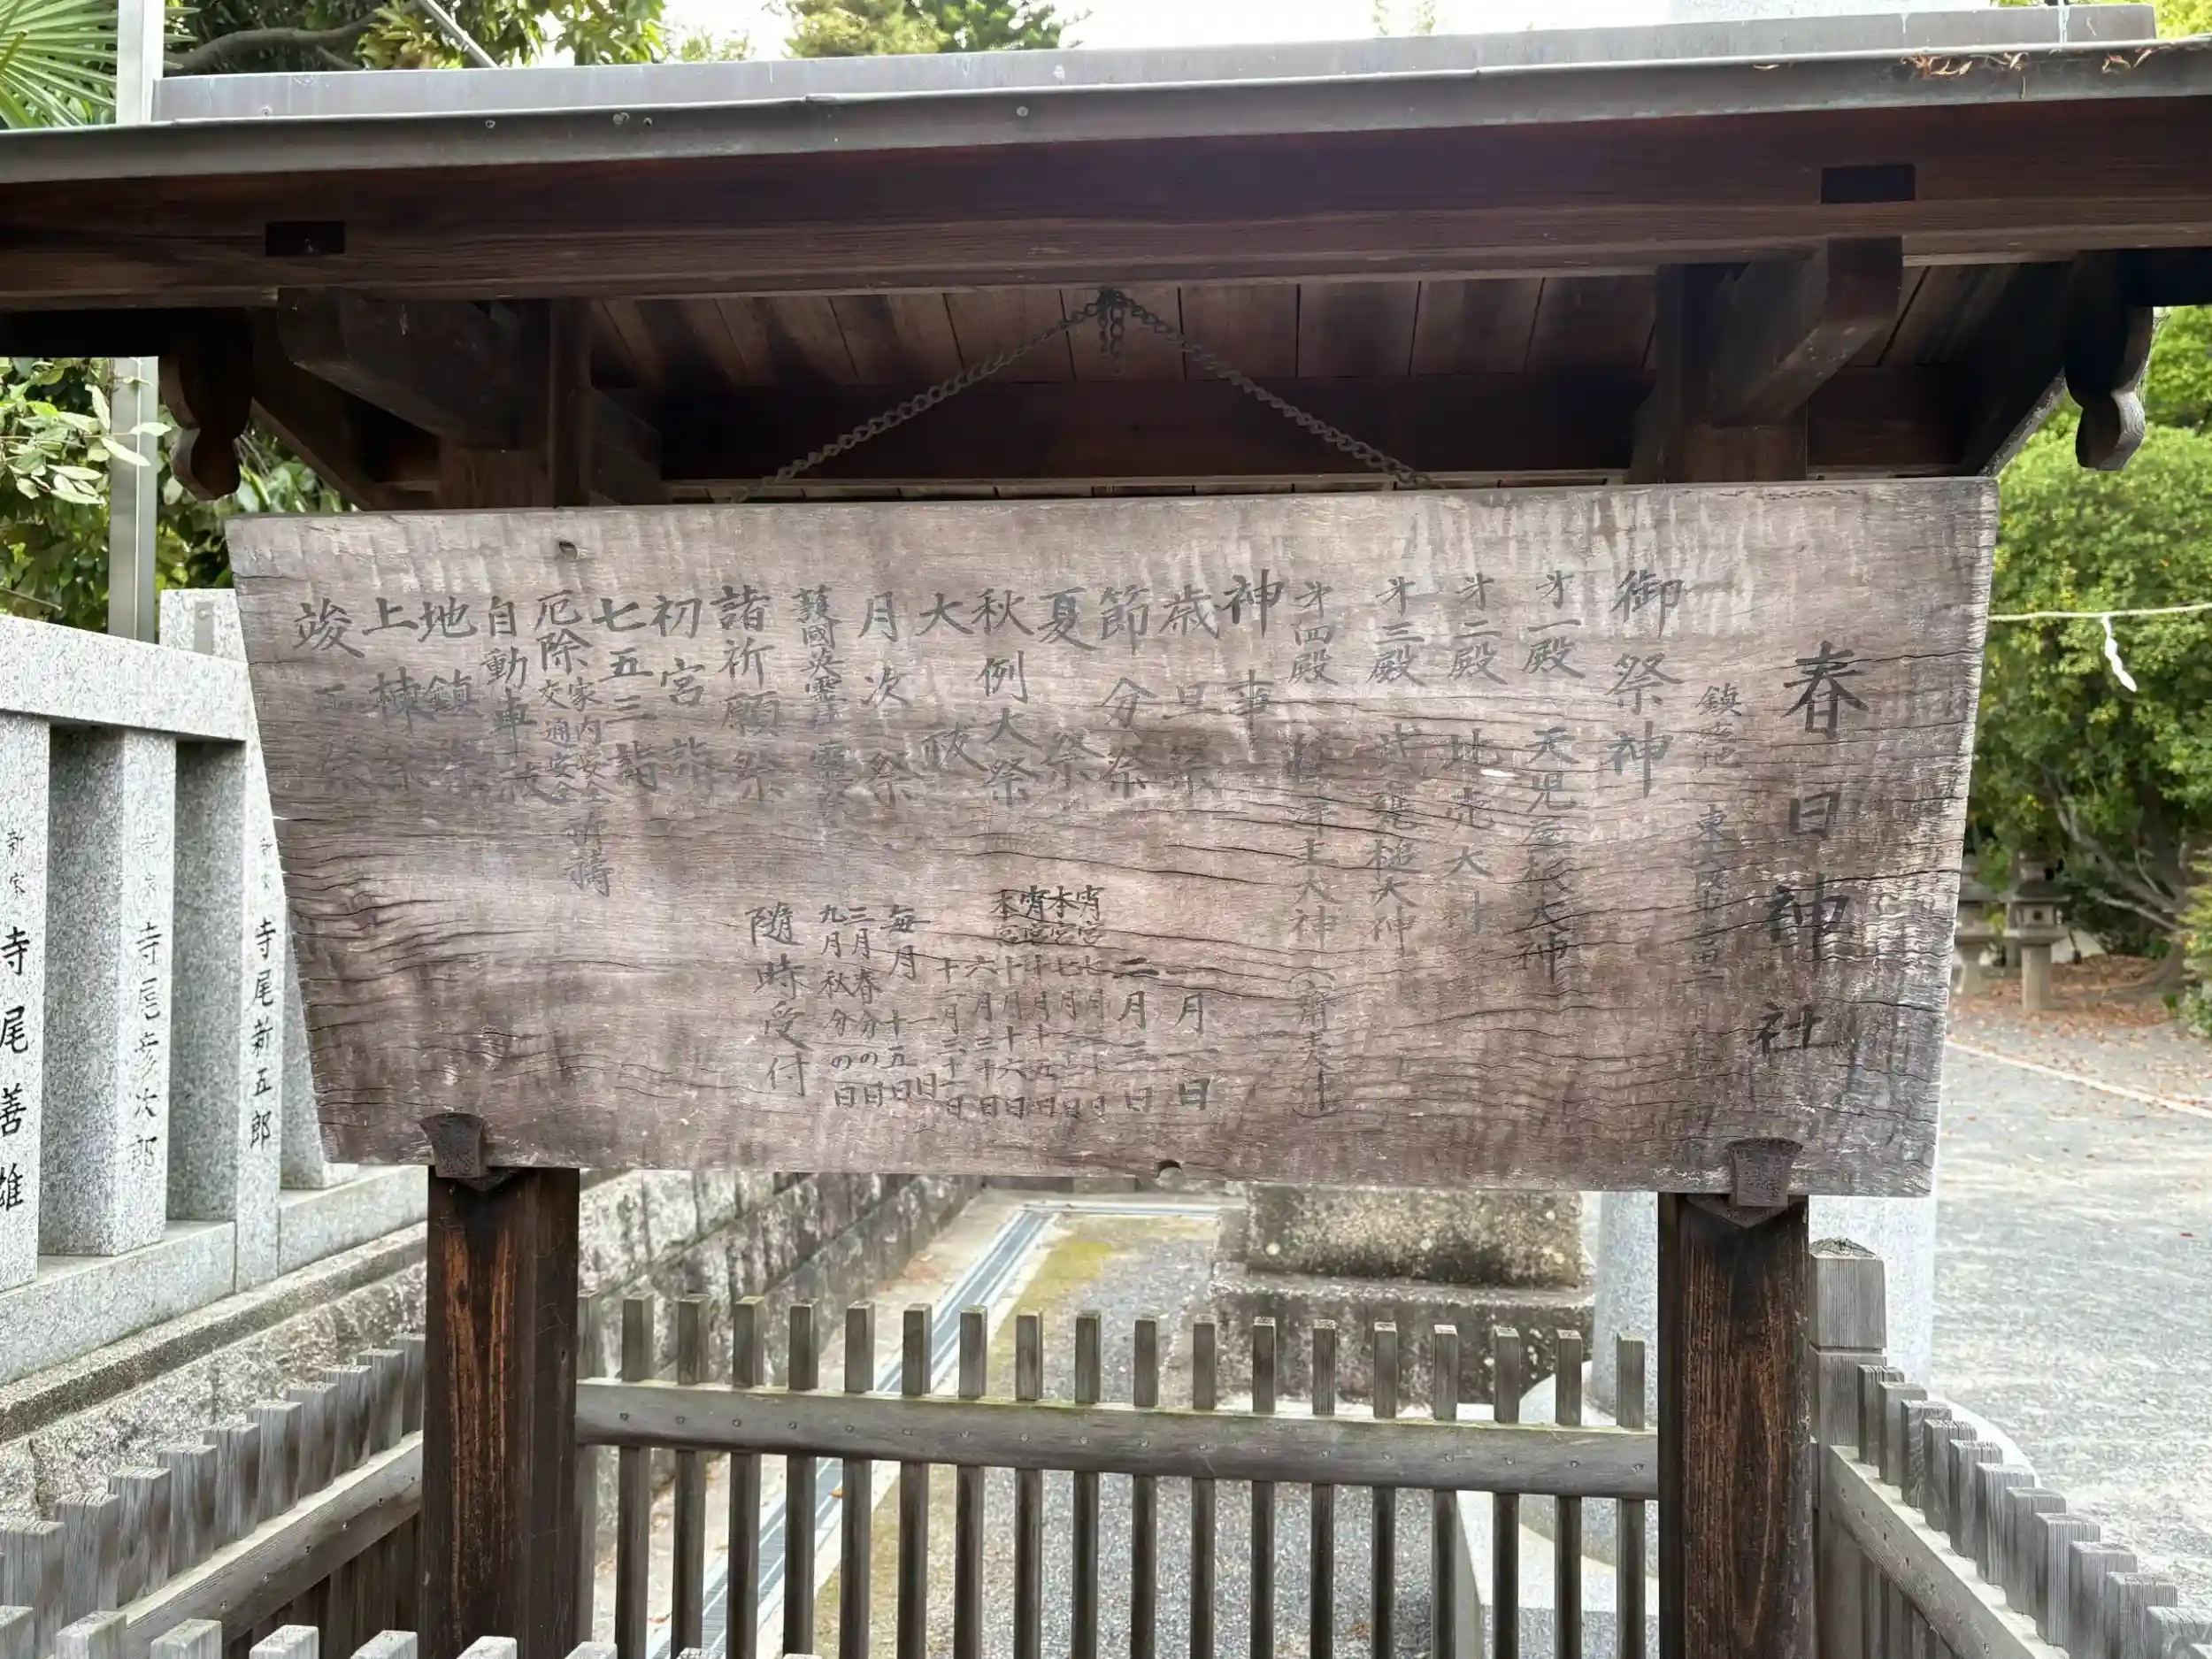 春日神社
鎮座地 東大阪市
御祭神
才一殿 天児屋根大神
才二殿 比売大神
才三殿 武甕槌大神
才四殿 主大神
神事
歳旦祭 一月一日
節分祭 二月三日
夏祭 宵宮七月 日
本宮七月 日
秋例大祭 宵宮十月十五日
本宮十月十六日
大祓 六月三十日
十二月三十一日
月次祭 毎月 一日
十五日
護國英霊 三月春分の日
九月秋分の日
諸祈願祭 隨時受付
初宮詣
七五三詣
厄除 家内安全 祈祷
交通安全
自動車祓
地鎮祭
上棟祭
竣工祭
新家 寺尾善雄
寺尾彦次郎
寺尾新五郎